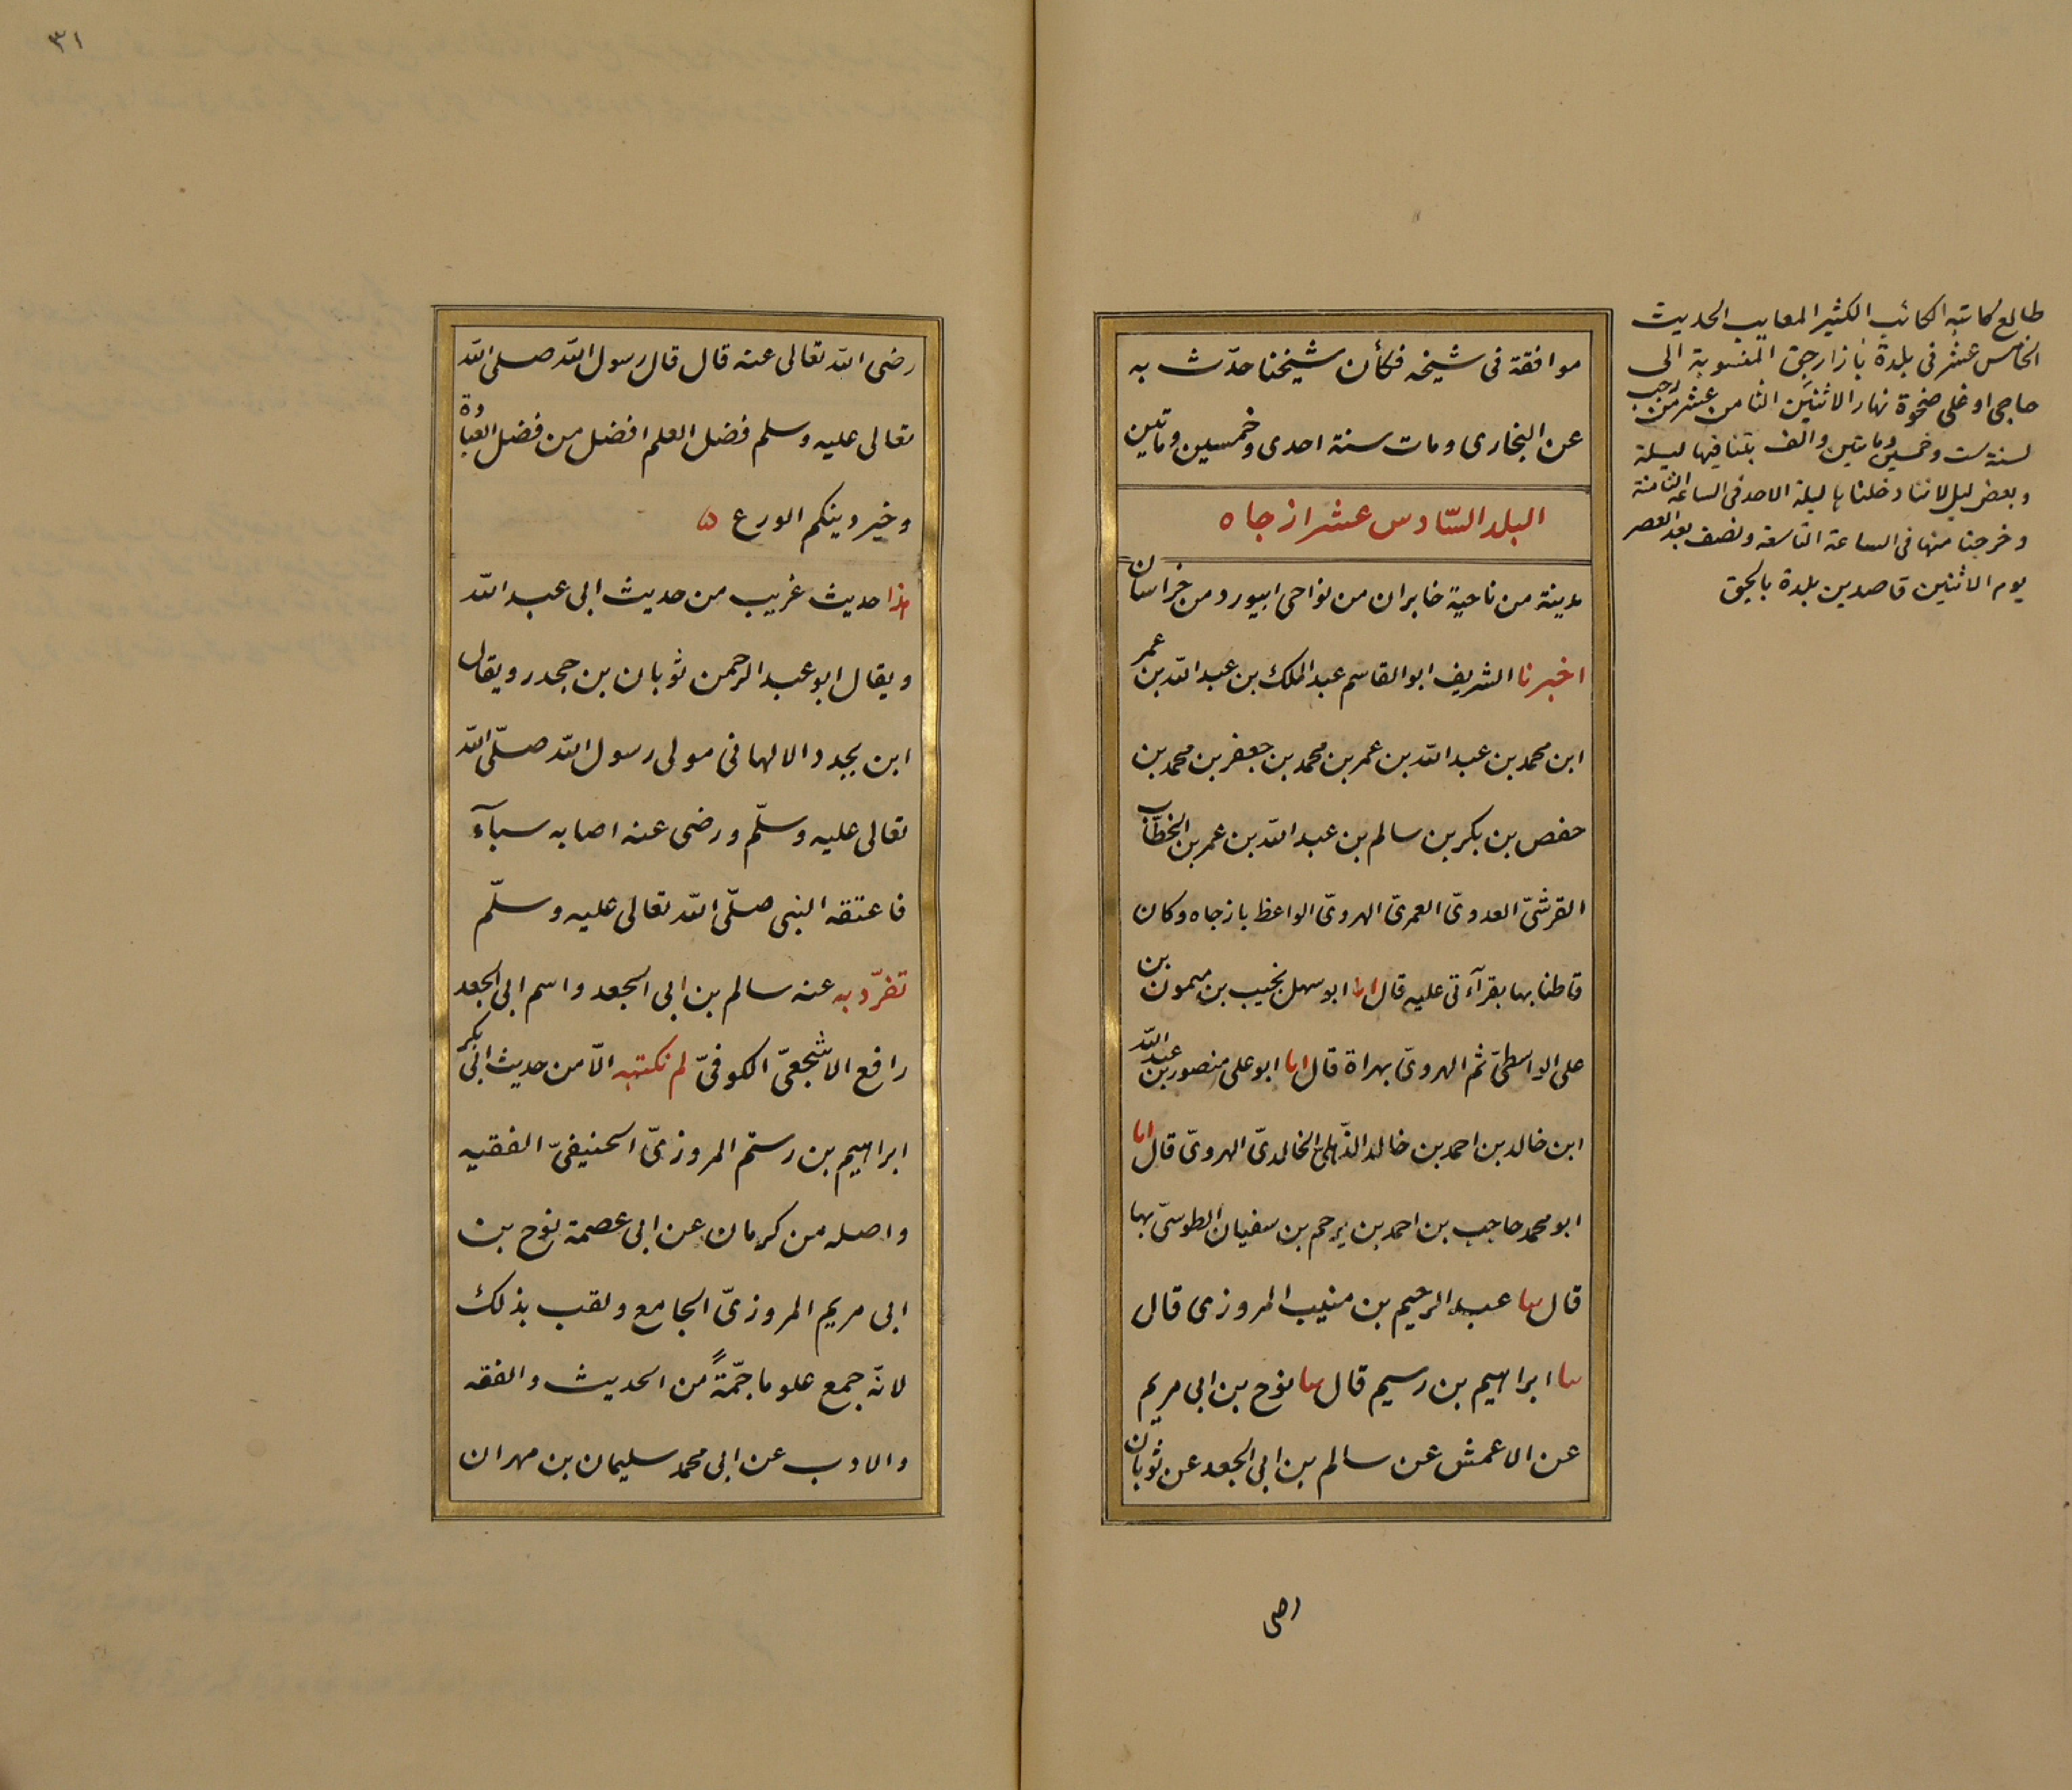 موافقة فى شيخه فكأن شيخنا حدّث به
عن البخارى ومات سنة احدى وخمسين ومائتين
البلد السّادس عشر ازجاه
مدينة من ناحية خابران من نواحى ابيورد من خراسان
اخبرنا الشريف ابو القاسم عبد الملك بن عبد اللّه بن عمر
ابن محمد بن عبد اللّه بن عمر بن محمد بن جعفر بن محمد بن
حفص بن بكر بن سالم بن عبد اللّه بن عمر بن الخطّاب
القرشىّ العدوىّ العمرىّ الهروىّ الواعظ بازجاه وكان
قاطنا بها بقرآءتى عليه قال انا ابو سهل نجيب بن ميمون بن
على الواسطىّ ثم الهروىّ بهراة قال انا ابو على منصور بن عبد اللّه
ابن خالد بن احمد بن خالد الذّهلىّ الخالدىّ الهروىّ قال انا
ابو محمد حاجب بن احمد بن يرحم بن سفيان الطوسىّ بها
قال ثنا عبد الرّحيم بن منيب المروزى قال
ثنا ابراهيم بن رسيم قال ثنا نوح بن ابى مريم
عن الاعمش عن سالم بن ابى الجعد عن ثوبان
رضى
طالع كاتبه الكثير المعايب الحديث
الخامس عشر فى بلدة بازارجق المنسوبة الى
حاجى اوغلى ضحوة نهار الاثنين الثامن عشر من رجب
لسنة ست وخمسين ومايتين والف بتنا فيها ليلة
وبعض ليل لاننا دخلنا ليلة الاحد فى الساعة الثامنة
وخرجنا منها فى الساعة التاسعة ونصف بعد العصر
يوم الاثنين قاصدين بلدة بالجيق
٣١
رضى اللّه تعالى عنه قال قال رسول اللّه صلى اللّه
تعالى عليه وسلم فضل العلم افضل من فضل العبادة
وخير دينكم الورع ۵
هذا حديث غريب من حديث ابى عبد اللّه
ويقال ابو عبد الرحمن ثوبان بن جحدر ويقال
ابن بجدد الالهانى مولى رسول اللّه صلّى اللّه
تعالى عليه وسلّم ورضى عنه اصابه سبآء
فاعتقه النبى صلّى اللّه تعالى عليه وسلّم
تفرّد به عنه سالم بن ابى الجعد واسم ابى الجعد
رافع الاشجعىّ الكوفىّ لم نكتبه الّا من حديث ابى بكر
ابراهيم بن رستم المروزىّ الحنيفىّ الفقيه
واصله من كرمان عن ابى عصمة نوح بن
ابى مريم المروزىّ الجامع ولقب بذلك
لانّه جمع علوما جمّةً من الحديث والفقه
والادب عن ابى محمد سليمان بن مهران